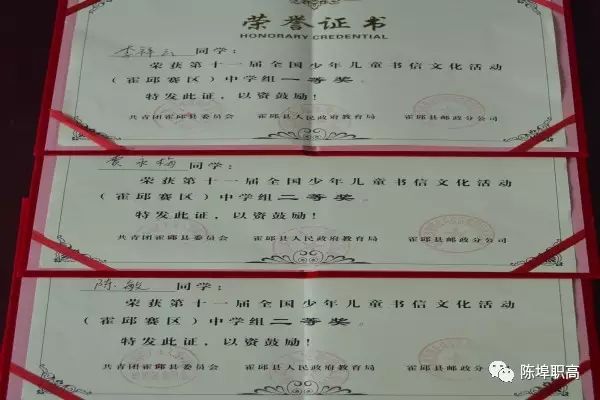 荣誉证书
HONORARY CREDENTIAL
李祥云 同学：
荣获第十一届全国少年儿童书信文化活动
（霍邱赛区）中学组一等奖。
特发此证，以资鼓励！
共青团霍邱县委员会 霍邱县人民政府教育局 霍邱县邮政分公司
袁永梅 同学：
荣获第十一届全国少年儿童书信文化活动
（霍邱赛区）中学组二等奖。
特发此证，以资鼓励！
共青团霍邱县委员会 霍邱县人民政府教育局 霍邱县邮政分公司
陈敏 同学：
荣获第十一届全国少年儿童书信文化活动
（霍邱赛区）中学组二等奖。
特发此证，以资鼓励！
共青团霍邱县委员会 霍邱县人民政府教育局 霍邱县邮政分公司
陈埠职高